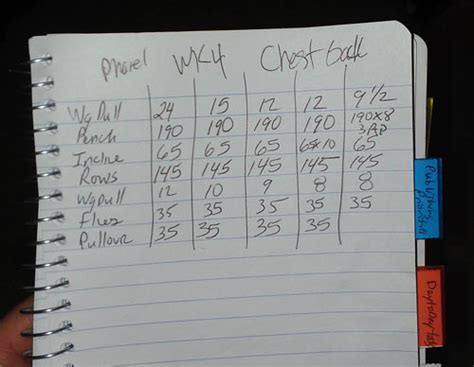 Phase1 WK4 Chest back
Wg Pull 24 15 12 12 9 1/2
Bench 190 190 190 190 190x8
3 AP
Incline 65 65 65 65x10 65
Rows 145 145 145 145 145
Wg pull 12 10 9 8 8
Flies 35 35 35 35 35
Pullover 35 35 35 35
Publishing
Day to Day